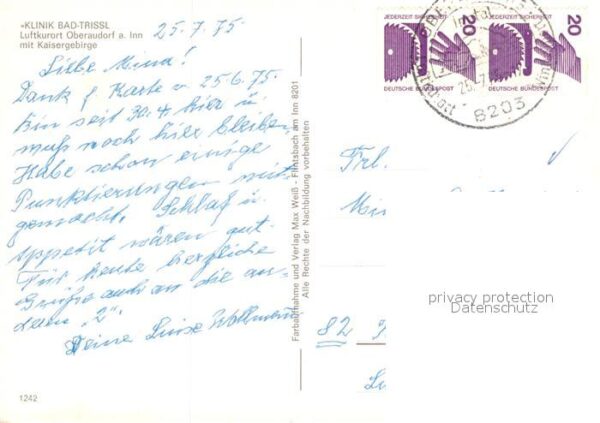 »KLINIK BAD-TRISSL
Luftkurort Oberaudorf a. Inn
mit Kaisergebirge
25.7.75
Liebe Mina!
Dank f. Karte v. 25.6.75.
bin seit 30.4 hier u.
muß noch hier bleiben
Habe schon einige
Punktierungen mit
gemacht. Schlaf u.
Appetit wären gut.
Für heute herzliche
Grüße auch an die an
dern "2".
Deine Luise
1242
Farbaufnahme und Verlag Max Weiß - Flintsbach am Inn 8201
Alle Rechte der Nachbildung vorbehalten
JEDERZEIT SICHERHEIT
20
DEUTSCHE BUNDESPOST
JEDERZEIT SICHERHEIT
20
DEUTSCHE BUNDESPOST
8203
Frl.
privacy protection
Datenschutz
82